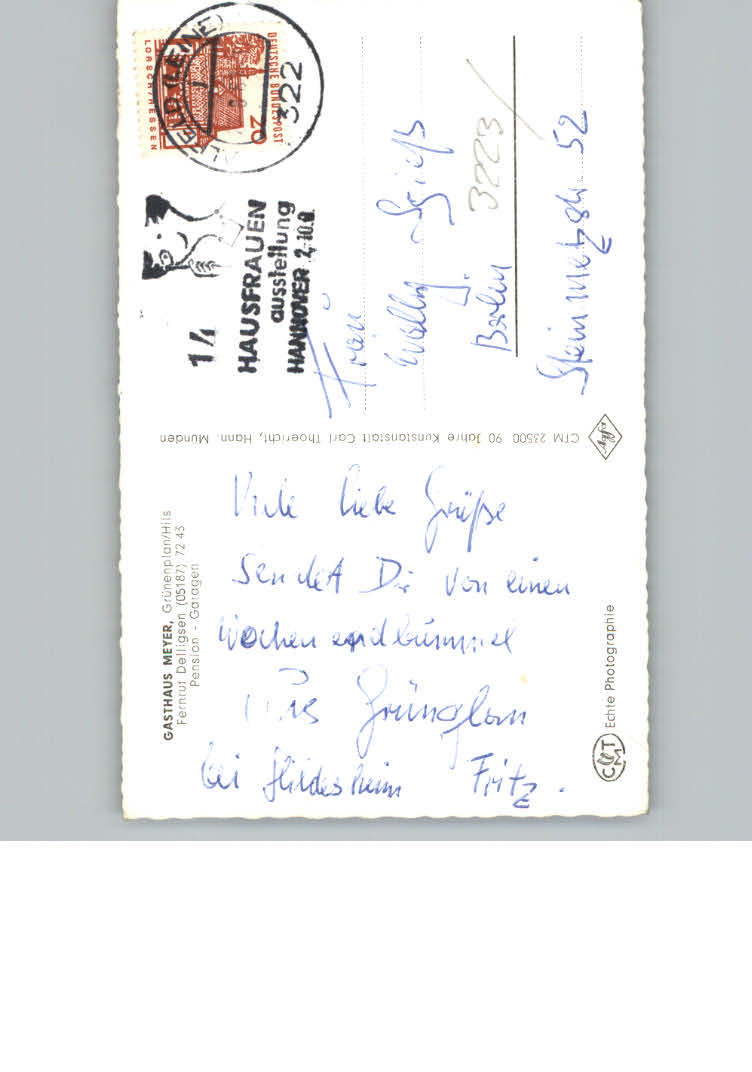 GASTHAUS MEYER, Grünenplan/Hils
Fernruf Delligsen (05187) 72 43
Pension - Garagen
Viele liebe Grüße
sendet Dir von einen
Wochenendbummel
aus Grünplan
bei Hildesheim Fritz.
CTM 23500 90 Jahre Kunstanstalt Carl Thoericht, Hann. Münden
CTM Echte Photographie
DEUTSCHE BUNDESPOST
20
LORSCH/HESSEN
ALFELD (LEINE)
322
14
HAUSFRAUEN
ausstellung
HANNOVER 2.-10.9.
Frau
3223
Berlin
Steinmetzstr. 52